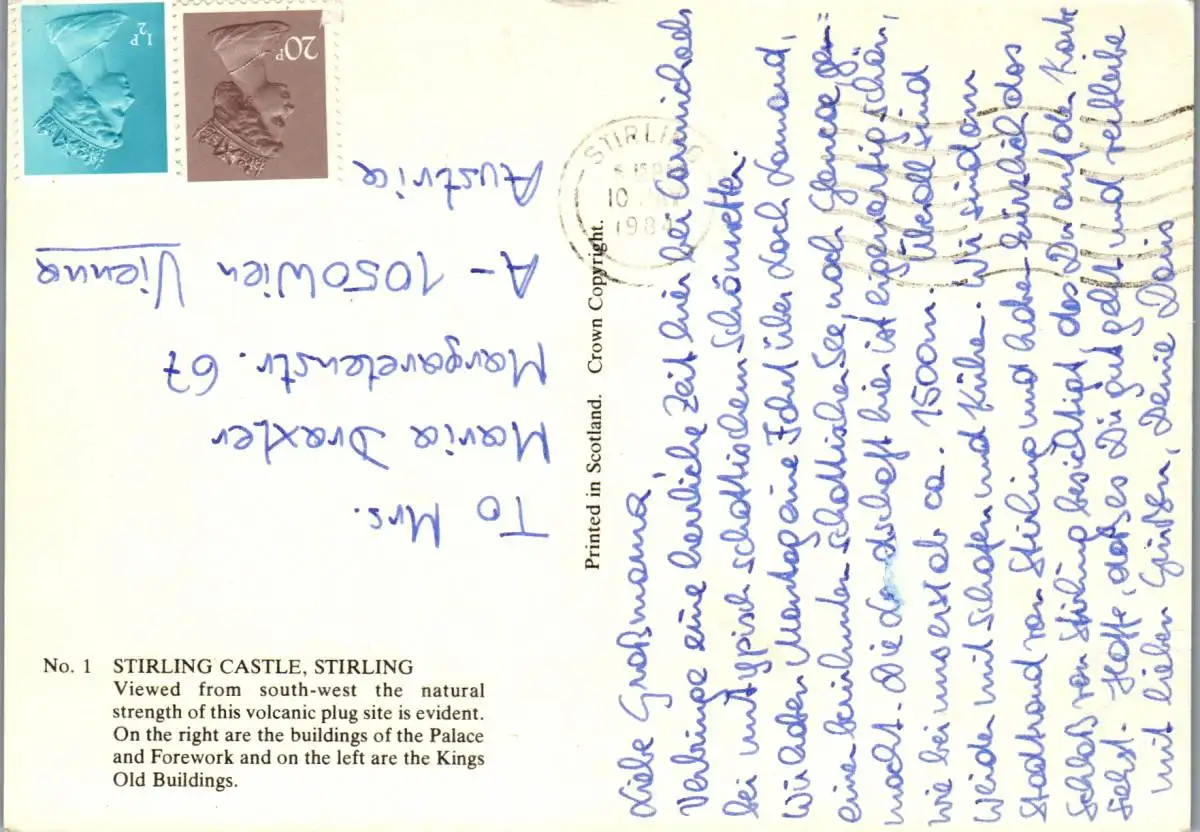 Liebe Großmama,
Verbringe eine herrliche Zeit hier bei Carmichaels
bei untypisch schottischem Schönwetter.
Wir haben Montag eine Fahrt über Loch Lomond,
einen berühmten schottischen See, nach Glencoe ge=
macht. Die Landschaft hier ist eigenartig schön,
wie bei uns erst ab ca. 1500m. Überall sind
Weiden mit Schafen und Kühen. Wir sind am
Stadtrand von Stirling und haben kürzlich das
Schloß von Stirling besichtigt das Du auf der Karte
siehst. Hoffe, daß es Dir gut geht und verbleibe
mit lieben Grüßen, Deine Doris
To Mrs.
Maria Draxler
Margaretenstr. 67
A-1050 Wien Vienna
Austria
½P
20P
STIRLING
10
1984
Printed in Scotland. Crown Copyright.
No. 1 STIRLING CASTLE, STIRLING
Viewed from south-west the natural
strength of this volcanic plug site is evident.
On the right are the buildings of the Palace
and Forework and on the left are the Kings
Old Buildings.